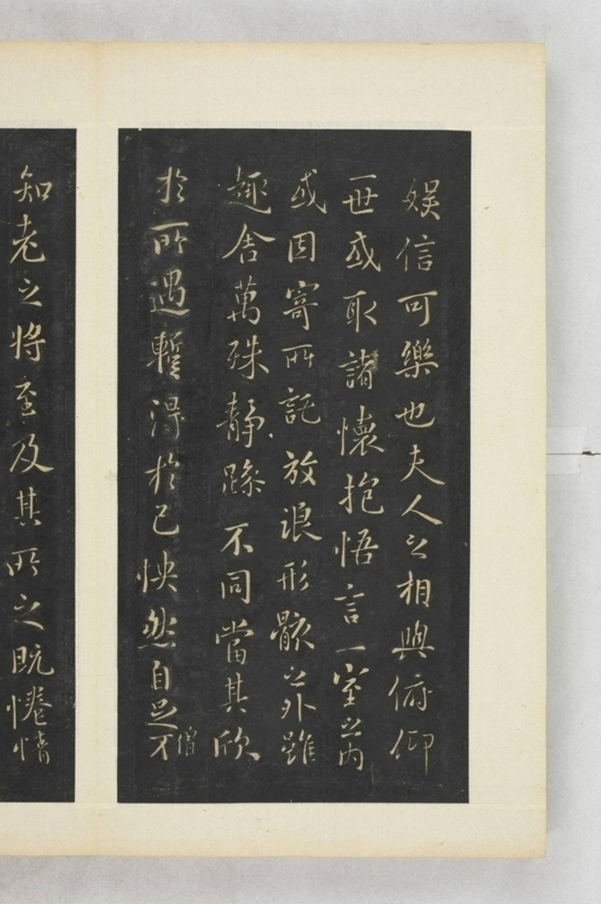 娛信可樂也夫人之相與俯仰
一世或取諸懷抱悟言一室之內
或因寄所託放浪形骸之外雖
趣舍萬殊靜躁不同當其欣
於所遇暫得於己怏然自足不
僧
知老之將至及其所之既惓情